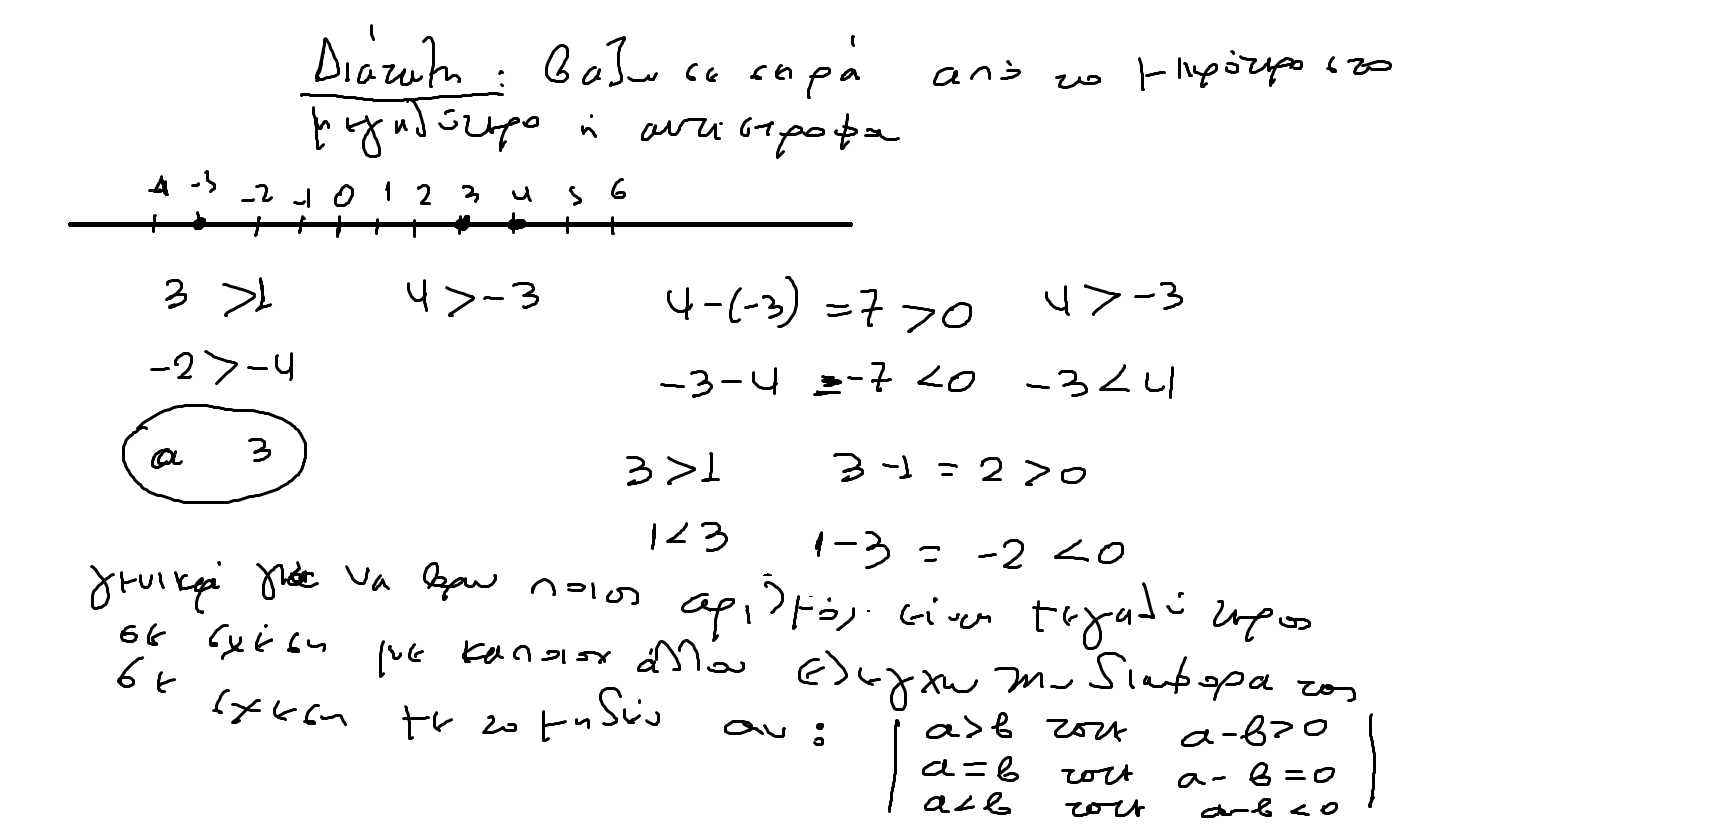 Διάταξη: βάζω σε σειρά από το μικρότερο στο
μεγαλύτερο ή αντίστροφα
-4 -3 -2 -1 0 1 2 3 4 5 6
3 >1 4>-3 4-(-3) =7 >0 4>-3
-2>-4 -3-4 =-7 <0 -3<4
a 3
3>1 3-1 = 2 >0
1<3 1-3 = -2 <0
γενικά για να βρω ποιος αριθμός είναι μεγαλύτερος
σε σχέση με κάποιον άλλον ελέγχω την διαφορά τους
σε σχέση με το μηδέν αν:
a>b τότε a-b>0
a=b τότε a-b=0
a<b τότε a-b<0